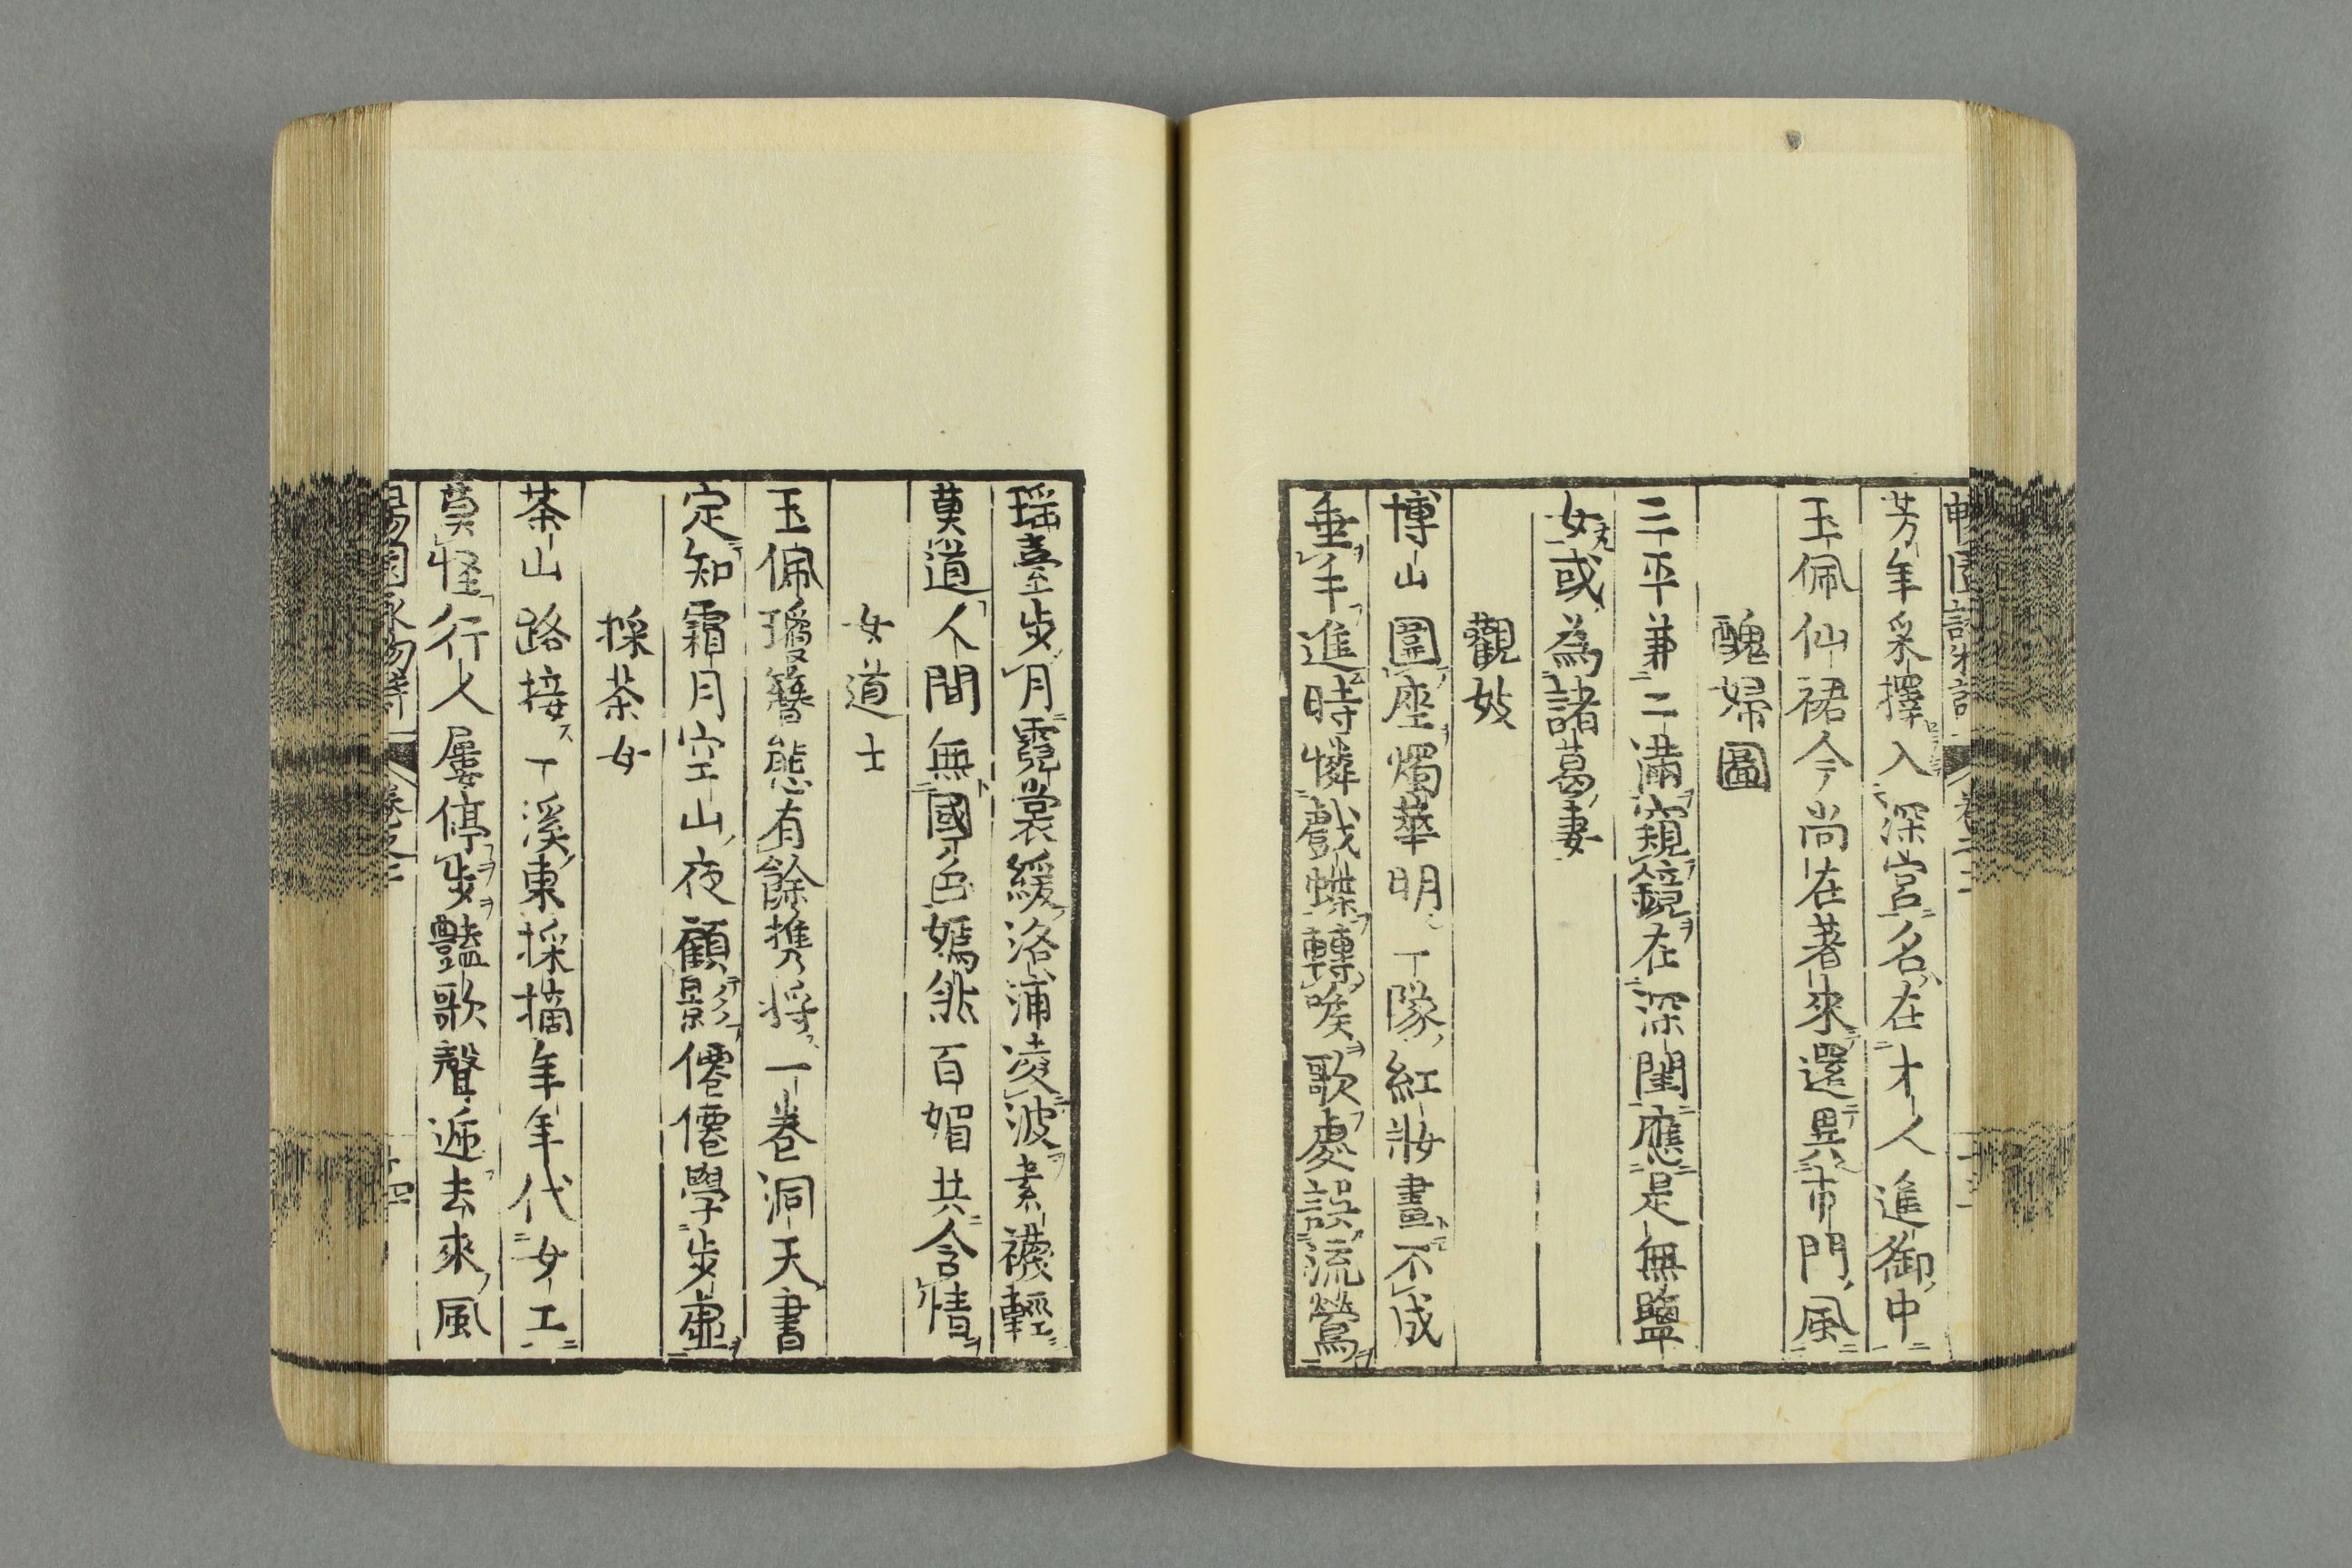 芳年采擇入深宮名在才人進御中
玉佩仙裙今尚在著來還異市門風
醜婦圖
三平兼二滿窺鏡在深閨應是無鹽
女或為諸葛妻
觀妓
博山圍座燭華明一隊紅妝畫不成
垂手進時憐戲蝶轉喉歌處誤流鶯
瑶臺步月霓裳緩洛浦凌波素襪輕
莫道人間無國色嫣然百媚共含情
女道士
玉佩瑤簪態有餘攜將一卷洞天書
定知霜月空山夜顧影僊僊學步虛
採茶女
茶山路接一溪東採摘年年代女工
莫怪行人屢停步豔歌聲遞去來風